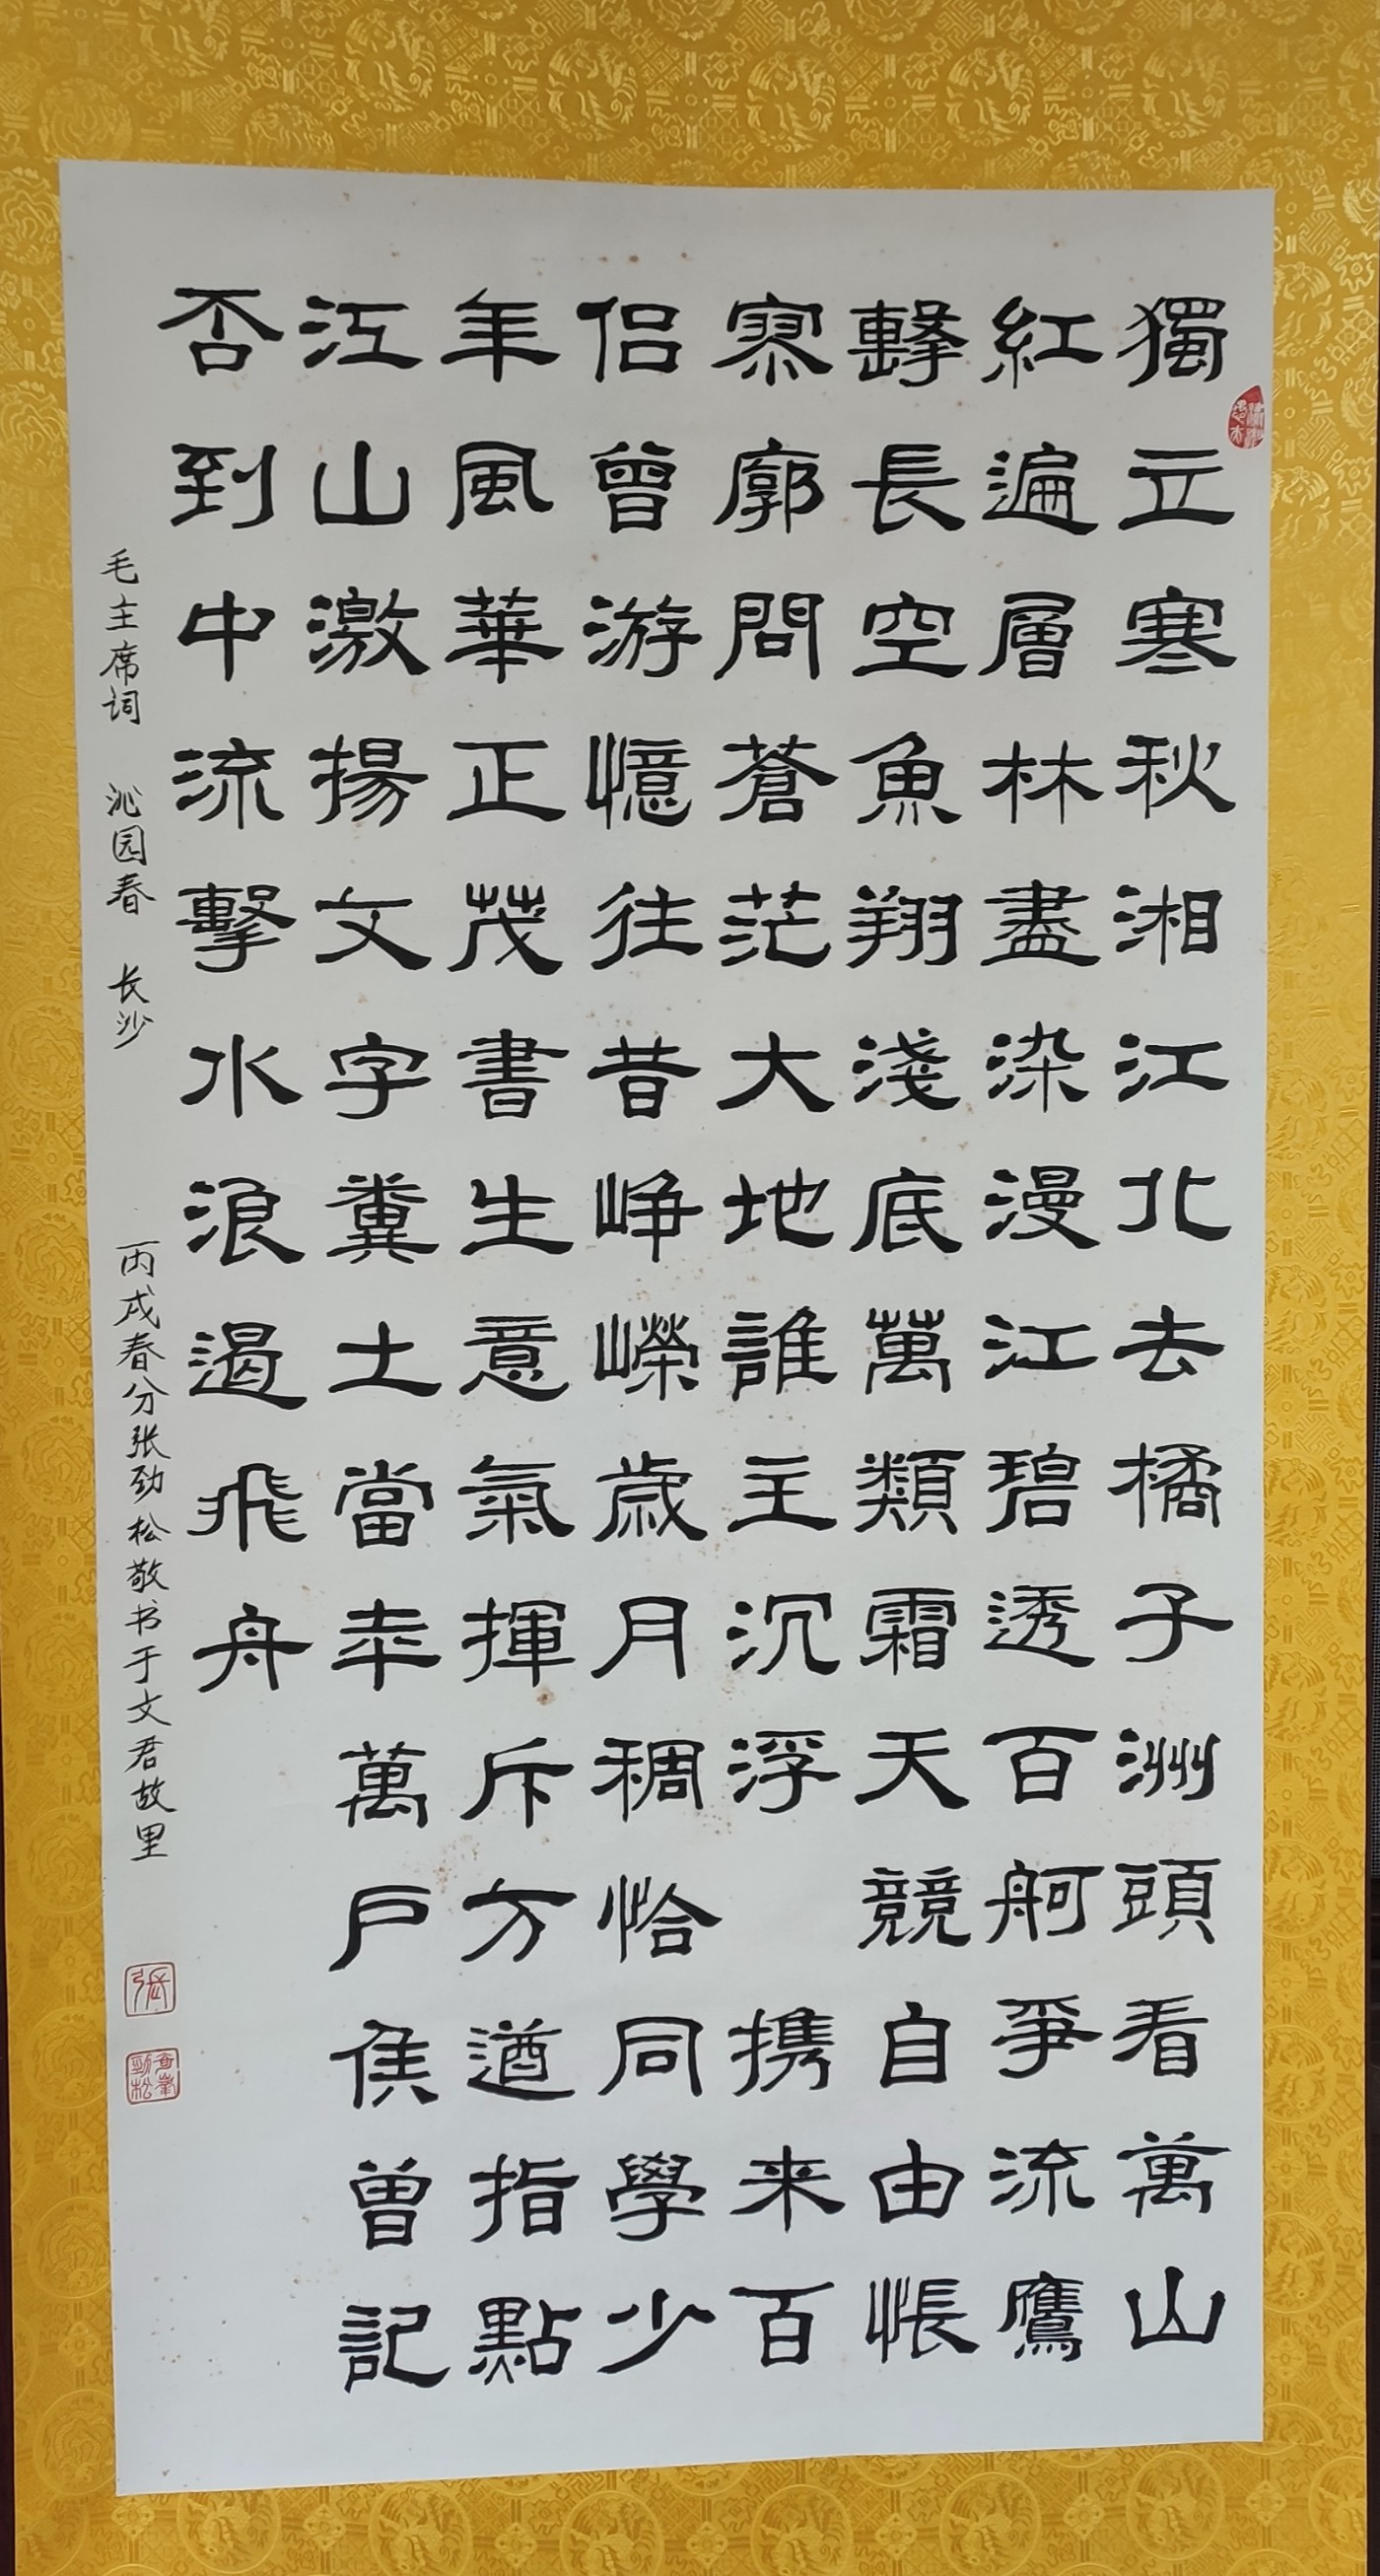 獨立寒秋湘江北去橘子洲頭看萬山
紅遍層林盡染漫江碧透百舸爭流鷹
擊長空魚翔淺底萬類霜天競自由悵
寥廓問蒼茫大地誰主沉浮 携来百
侣曾游憶往昔崢嶸歲月稠恰同學少
年風華正茂書生意氣揮斥方遒指點
江山激揚文字糞土當年萬戶侯曾記
否到中流擊水浪遏飛舟
毛主席词 沁园春 长沙 丙戌春分张劲松敬书于文君故里
張